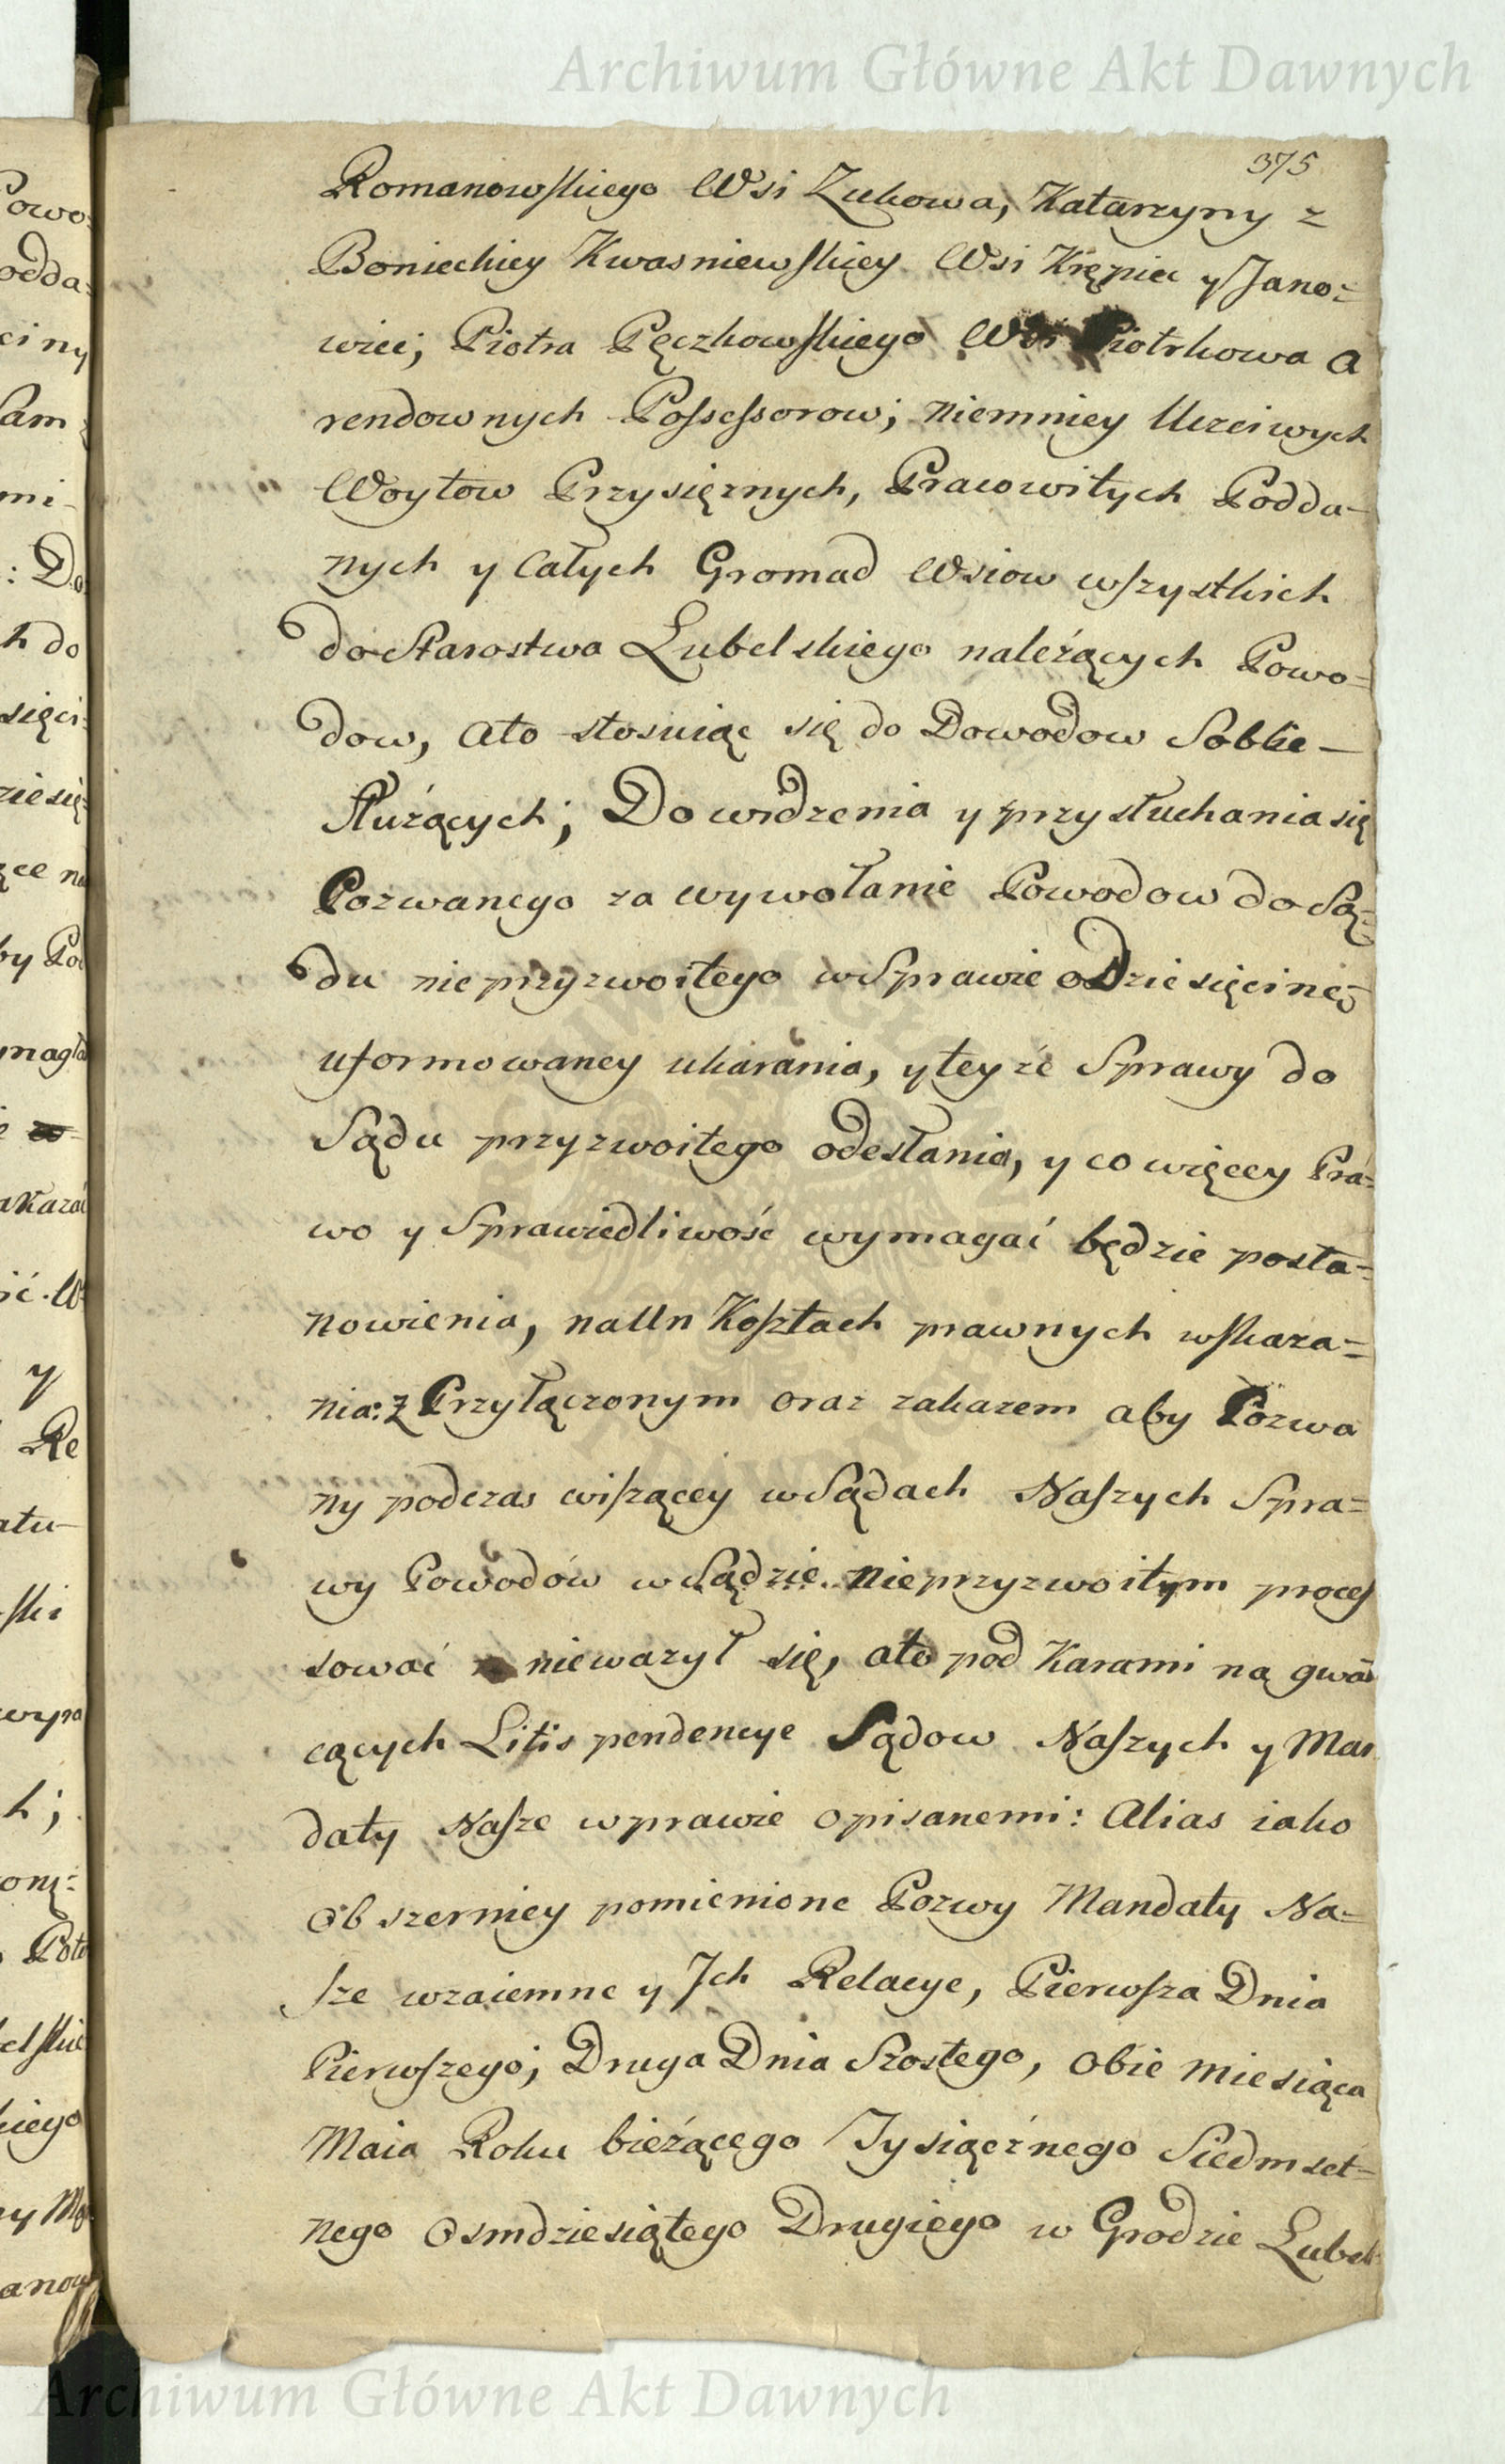 Archiwum Główne Akt Dawnych
375
Romanowskiego Wsi Zukowa, Katarzyny z
Bonieckiey Kwasniewskiey Wsi Krępiec y Jano=
wiec; Piotra Pęczkowskiego Wsi Piotrkowa a
rendownych Possessorow; niemniey Uczciwych
Woytow Przysięznych, Pracowitych Podda-
nych y Całych Gromad Wsiow wszystkich
do Starostwa Lubelskiego naleźących Powo=
dow, ato stosuiąc się do Dowodow Sobie -
Służących; Do widzenia y przysłuchania się
Pozwanego za wywołanie Powodow do Są=
du nieprzyzwoitego w Sprawie o Dziesięcinę
uformowaney ukarania, y teyże Sprawy do
Sądu przyzwoitego odesłania, y co więcey Pra=
wo y Sprawiedliwość wymagać będzie posta=
nowienia, na Un Kosztach prawnych wskaza=
nia: z Przyłączonym oraz zakazem aby Pozwa
ny podczas wiszącey w Sądach Naszych Spra=
wy Powodów w Sądzie nieprzyzwoitym proces
sować nieważył się, ato pod Karami na gwał
cących Litis pendencye Sądow Naszych y Man
daty Nasze w prawie opisanemi: Alias iako
Obszerniey pomienione Pozwy Mandaty Na=
sze wzaiemne y Jch Relacye, Pierwsza Dnia
Pierwszego; Druga Dnia Szostego, Obie Miesiąca
Maia Roku bieźącego Tysiącznego Siedmset=
nego Osmdziesiątego Drugiego w Grodzie Lubel
Archiwum Główne Akt Dawnych